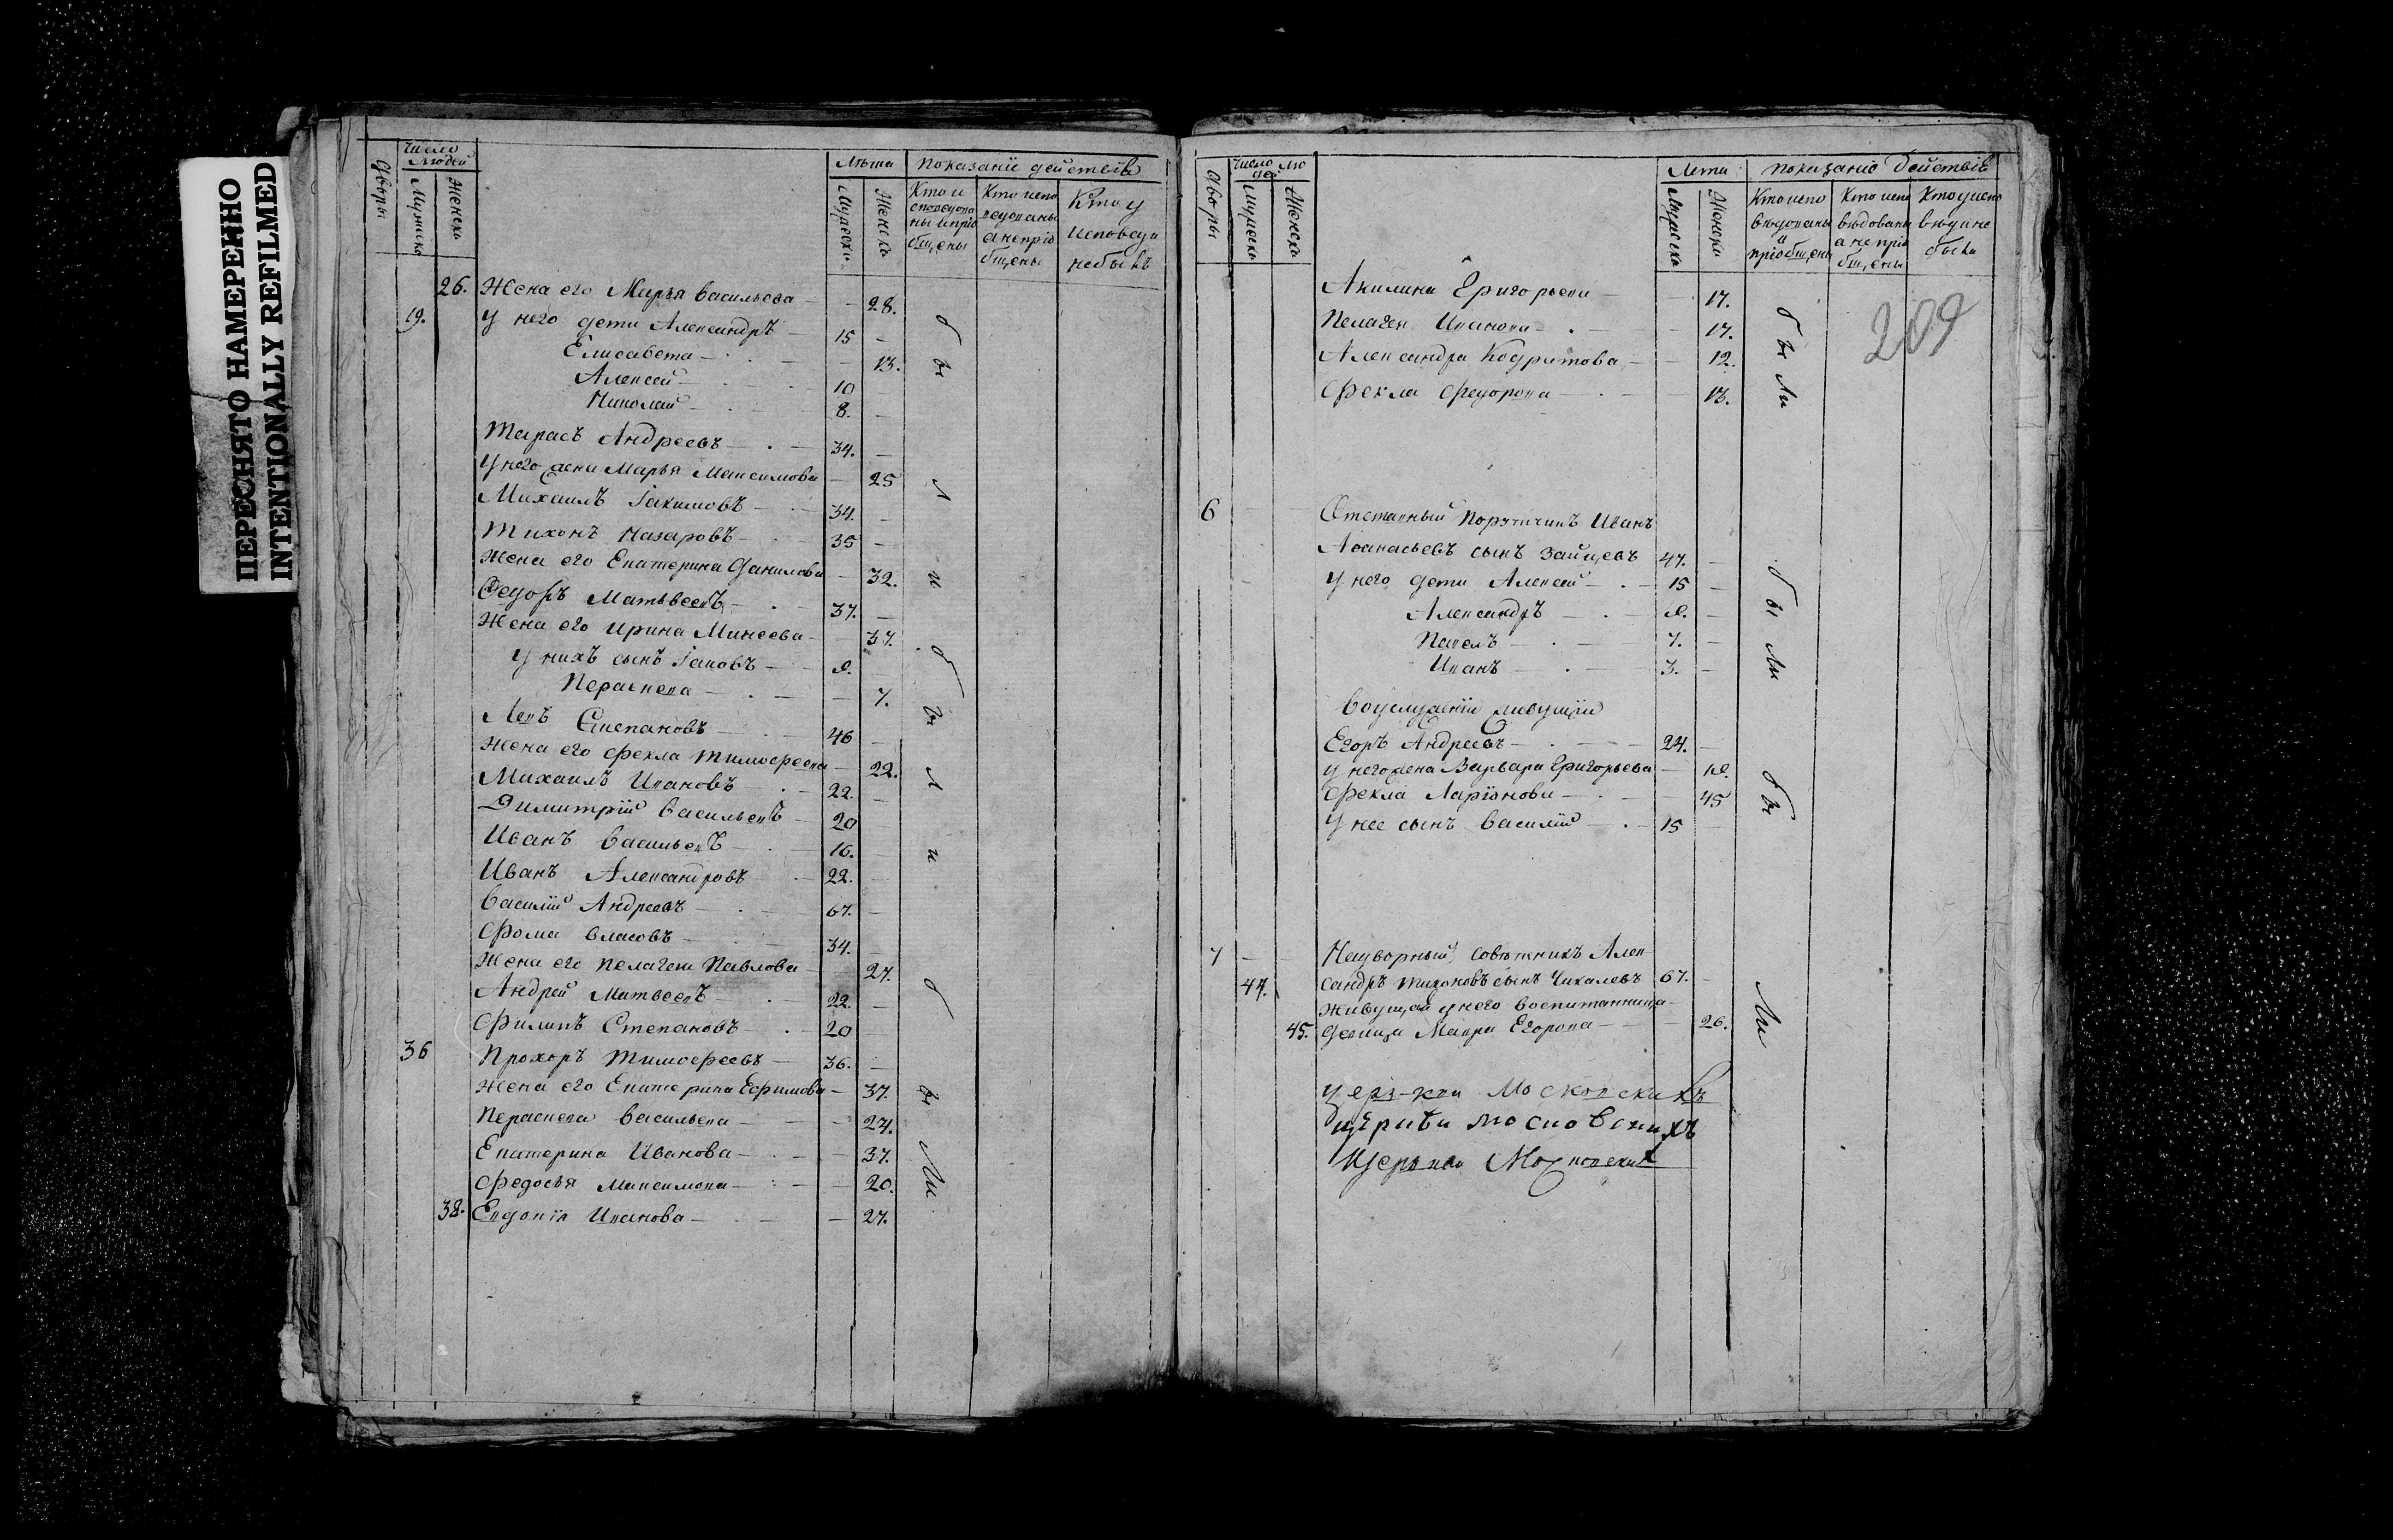 ПЕРЕСНЯТО НАМЕРЕННО
INTENTIONALLY REFILMED
Дворы
Число людей
Мужска
Женска
Лѣта
показаніи действіи
Мужска
Женска
Кто и
споведова
ны и пріо
бщены
Кто испо
ведованы
а непріо
бщены
Кто у
исповеди
небылъ
26. Жена его Марья васильева — — 28.
19. У него дети Александръ — 15 —
Елисавета — — 13.
Алексей — 10
Николай — 8. —
Тарасъ Андреевъ — 34. —
У него жена Марья Максимова — 25
Михаилъ Іакимовъ — 34. —
Тихонъ Назаровъ — 35 —
Жена его Екатерина Данилова — 32.
Федоръ Матьвеевъ — 37. —
Жена его Ирина Минеева — — 37.
У нихъ сынъ Іаковъ — 9.
Пераскева — — 7.
Левъ Степановъ — 46 —
Жена его Фекла Тимофеева — 22.
Михаилъ Ивановъ — 22. —
Димитрій васильевъ — 20
Иванъ васильевъ — 16. —
Иванъ Александровъ — 22. —
Василій Андреевъ — 67. —
Фома власовъ — 34. —
Жена его Пелагея Павлова — 27.
Андрей Матвеевъ — 22. —
Филипъ Степановъ — 20 —
36 Прохоръ Тимофеевъ — 36. —
Жена его Екатерина Ефимова — 37.
Пераскева васильева — — 27.
Екатерина Иванова — — 37.
Федосья Максимова — — 20.
38. Евдокія Иванова — — 27.
бы
ли
бы
ли
бы
Ли
Дворы
Число лю
дей
Мужеска
Женска
Лета
показаніе действіе
Мужеска
Женска
Кто испо
вѣдованы
и
пріобщены
Кто испо
вѣдованы
а непріо
бщены
Кто у испо
вѣди не
была
209
Акилина Григорьева — — 17.
Пелагея Иванова — — 17.
Александра Кодратова — — 12.
Фекла Федорова — — 13.
бы Ли
6 — — Отставный порутчикъ Иванъ
Афанасьевъ сынъ Зайцевъ 47. —
У него дети Алексей — 15 —
Александръ — 9. —
Павелъ — 7. —
Иванъ — 3. —
бы ли
воуслуженіи живущіи
Егоръ Андреевъ — 24. —
У него жена Варвара Григорьева — 19.
Фекла Ларіонова — — 45
У нее сынъ василій — 15 —
бы
7 — — Надворный Совѣтникъ Алек
44. сандръ Тихоновъ сынъ Чихалевъ 67. —
Живущая у него воспитанница
45. девица Мавра Егорова — — 26.
Ли
церькви Московскихъ
церькви московскихъ
церькви Московских